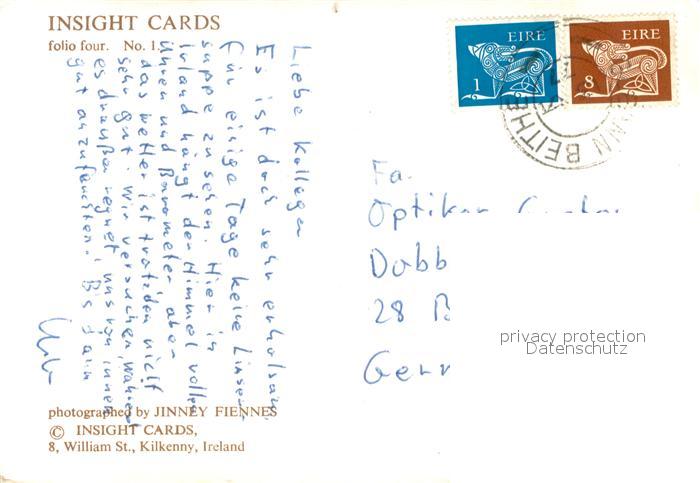 INSIGHT CARDS
folio four. No. 1.
Liebe Kollegen
Es ist doch sehr erholsam
für einige Tage keine Linsen-
suppe zu sehen. Hier in
Irland hängt der Himmel voller
Uhren und Barometer, aber
das Wetter ist trotzdem nicht
sehr gut. Wir versuchen, während
es draußen regnet, uns von innen
gut anzufeuchten. Bis dann
EIRE
1
EIRE
8
BEITHE
Fa.
Optiker
Dobb
28 B
Germ
privacy protection
Datenschutz
photographed by JINNEY FIENNES
© INSIGHT CARDS,
8, William St., Kilkenny, Ireland